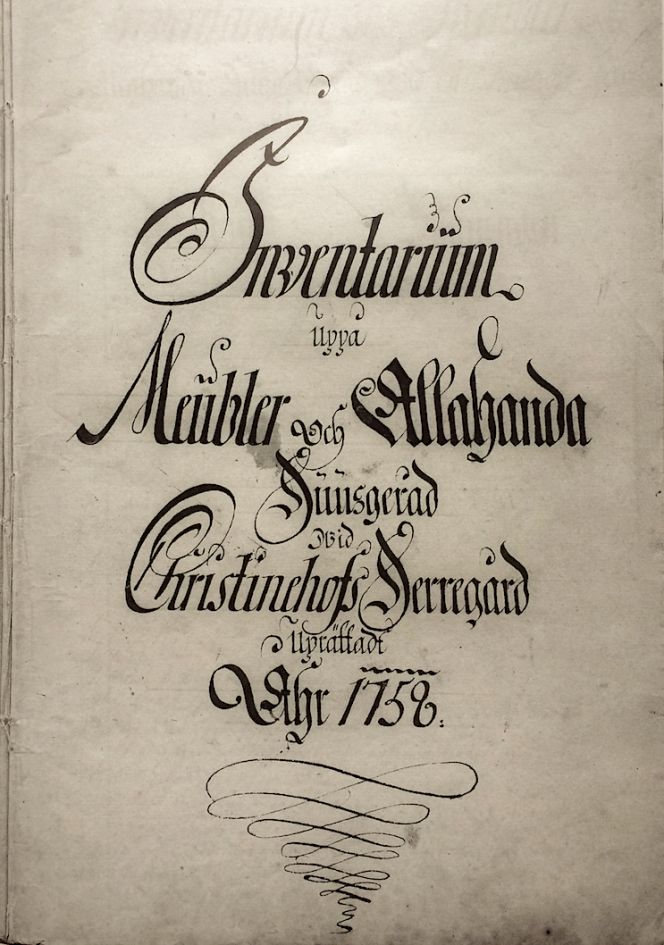 Inventariüm
Uppå
Meübler Och Allahanda
Hüüsgeråd
wid
Christinehofs Herregård
Uprättadt
Ahr 1758.